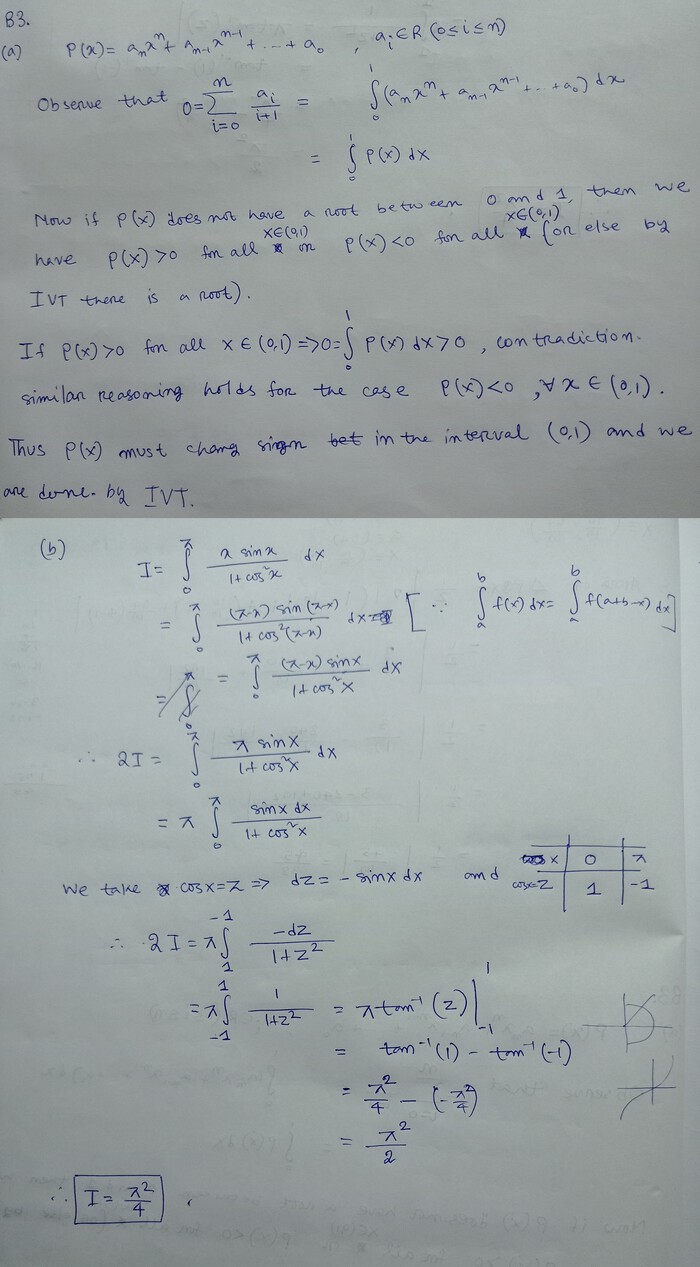 B3.
(a) P(x) = aₙxⁿ + aₙ₋₁xⁿ⁻¹ + ... + a₀ , aᵢ ∈ R (0 ≤ i ≤ n)
Observe that 0 = ∑_{i=0}^{n} aᵢ/(i+1) = ∫₀¹ (aₙxⁿ + aₙ₋₁xⁿ⁻¹ + ... + a₀) dx
= ∫₀¹ P(x) dx
Now if P(x) does not have a root between 0 and 1, then we
have P(x) > 0 for all x∈(0,1) or P(x) < 0 for all x∈(0,1) (or else by
IVT there is a root).
If P(x) > 0 for all x ∈ (0,1) => 0 = ∫₀¹ P(x) dx > 0 , contradiction.
similar reasoning holds for the case P(x) < 0 , ∀ x ∈ (0,1).
Thus P(x) must chang sign in the interval (0,1) and we
are done. by IVT.
(b) I = ∫₀^π (x sin x)/(1 + cos²x) dx
= ∫₀^π ((π-x) sin(π-x))/(1 + cos²(π-x)) dx [∵ ∫ₐᵇ f(x) dx = ∫ₐᵇ f(a+b-x) dx]
= ∫₀^π ((π-x) sin x)/(1 + cos²x) dx
∴ 2I = ∫₀^π (π sin x)/(1 + cos²x) dx
= π ∫₀^π (sin x dx)/(1 + cos²x)
We take cos x = z => dz = - sin x dx and
x 0 π
cos x = z 1 -1
∴ 2I = π ∫₁⁻¹ (-dz)/(1 + z²)
= π ∫₋₁¹ 1/(1+z²) = π tan⁻¹(z) |₋₁¹
= tan⁻¹(1) - tan⁻¹(-1)
= π²/4 - (-π²/4)
= π²/2
∴ I = π²/4 .